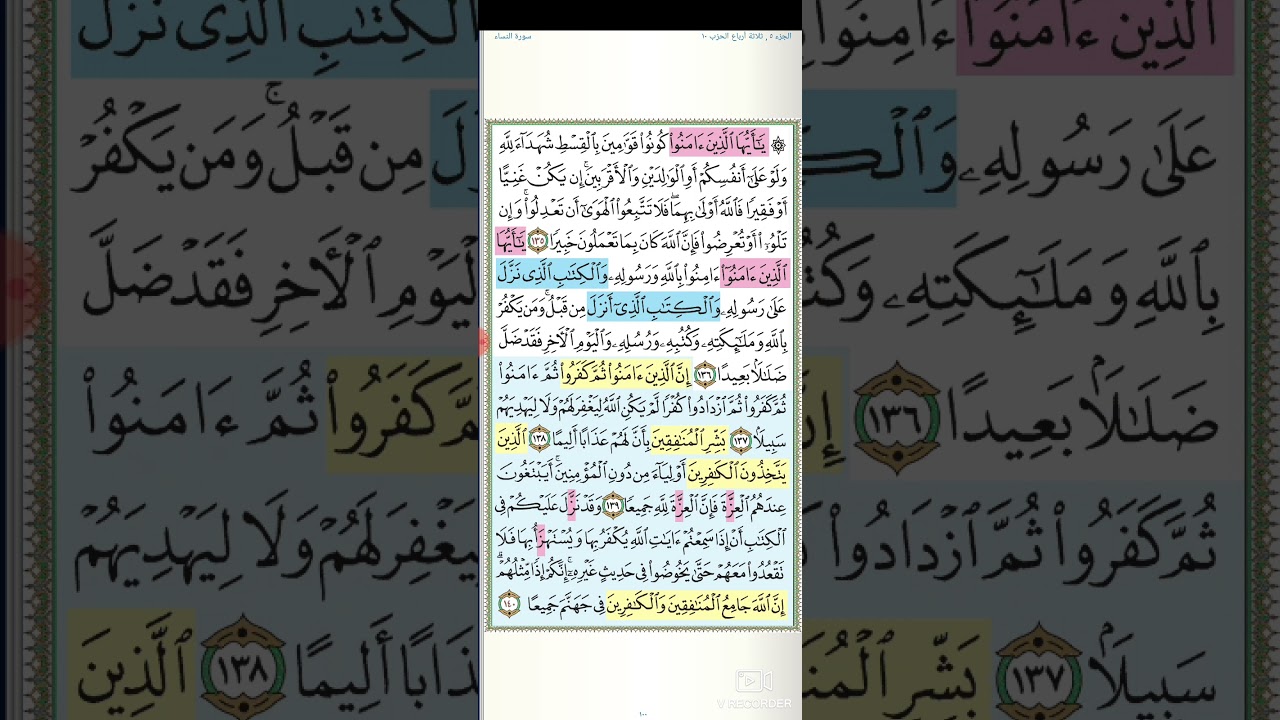 الجزء ٥ , ثلاثة أرباع الحزب ١٠
سورة النساء
۞ يَـٰٓأَيُّهَا ٱلَّذِينَ ءَامَنُوا۟ كُونُوا۟ قَوَّٰمِينَ بِٱلْقِسْطِ شُهَدَآءَ لِلَّهِ
وَلَوْ عَلَىٰٓ أَنفُسِكُمْ أَوِ ٱلْوَٰلِدَيْنِ وَٱلْأَقْرَبِينَ ۚ إِن يَكُنْ غَنِيًّا
أَوْ فَقِيرًا فَٱللَّهُ أَوْلَىٰ بِهِمَا ۖ فَلَا تَتَّبِعُوا۟ ٱلْهَوَىٰٓ أَن تَعْدِلُوا۟ ۚ وَإِن
تَلْوُۥٓا۟ أَوْ تُعْرِضُوا۟ فَإِنَّ ٱللَّهَ كَانَ بِمَا تَعْمَلُونَ خَبِيرًا ١٣٥ يَـٰٓأَيُّهَا
ٱلَّذِينَ ءَامَنُوٓا۟ ءَامِنُوا۟ بِٱللَّهِ وَرَسُولِهِۦ وَٱلْكِتَـٰبِ ٱلَّذِى نَزَّلَ
عَلَىٰ رَسُولِهِۦ وَٱلْكِتَـٰبِ ٱلَّذِىٓ أَنزَلَ مِن قَبْلُ ۚ وَمَن يَكْفُرْ
بِٱللَّهِ وَمَلَـٰٓئِكَتِهِۦ وَكُتُبِهِۦ وَرُسُلِهِۦ وَٱلْيَوْمِ ٱلْـَٔاخِرِ فَقَدْ ضَلَّ
ضَلَـٰلًۢا بَعِيدًا ١٣٦ إِنَّ ٱلَّذِينَ ءَامَنُوا۟ ثُمَّ كَفَرُوا۟ ثُمَّ ءَامَنُوا۟
ثُمَّ كَفَرُوا۟ ثُمَّ ٱزْدَادُوا۟ كُفْرًا لَّمْ يَكُنِ ٱللَّهُ لِيَغْفِرَ لَهُمْ وَلَا لِيَهْدِيَهُمْ
سَبِيلًۢا ١٣٧ بَشِّرِ ٱلْمُنَـٰفِقِينَ بِأَنَّ لَهُمْ عَذَابًا أَلِيمًا ١٣٨ ٱلَّذِينَ
يَتَّخِذُونَ ٱلْكَـٰفِرِينَ أَوْلِيَآءَ مِن دُونِ ٱلْمُؤْمِنِينَ ۚ أَيَبْتَغُونَ
عِندَهُمُ ٱلْعِزَّةَ فَإِنَّ ٱلْعِزَّةَ لِلَّهِ جَمِيعًا ١٣٩ وَقَدْ نَزَّلَ عَلَيْكُمْ فِى
ٱلْكِتَـٰبِ أَنْ إِذَا سَمِعْتُمْ ءَايَـٰتِ ٱللَّهِ يُكْفَرُ بِهَا وَيُسْتَهْزَأُ بِهَا فَلَا
تَقْعُدُوا۟ مَعَهُمْ حَتَّىٰ يَخُوضُوا۟ فِى حَدِيثٍ غَيْرِهِۦٓ ۚ إِنَّكُمْ إِذًا مِّثْلُهُمْ ۗ
إِنَّ ٱللَّهَ جَامِعُ ٱلْمُنَـٰفِقِينَ وَٱلْكَـٰفِرِينَ فِى جَهَنَّمَ جَمِيعًا ١٤٠
V RECORDER
١٠٠